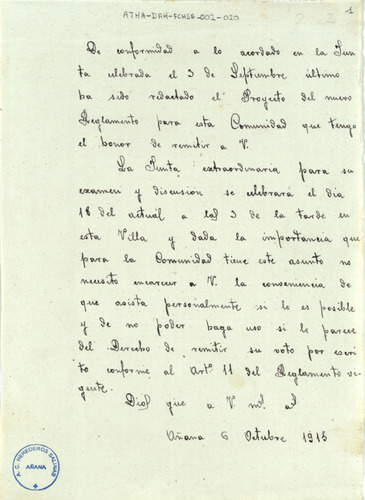 ATHA-DAH-FCHSA-002-020
1
De conformidad a lo acordado en la Jun
ta celebrada el 3 de Septiembre último
ha sido redactado el Proyecto del nuevo
Reglamento para esta Comunidad que tengo
el honor de remitir a V.
La Junta extraordinaria para su
examen y discusion se celebrará el dia
18 del actual a las 3 de la tarde en
esta Villa y dada la importancia que
para la Comunidad tiene este asunto no
necesito encarecer a V. la conveniencia de
que asista personalmente si le es posible
y de no poder haga uso si le parece
del Derecho de remitir su voto por escri
to conforme al Artº 11 del Reglamento vi
gente.
Dios gue a V. ms. as.
Añana 6 Octubre 1915
A.C. HEREDEROS SALINAS
AÑANA